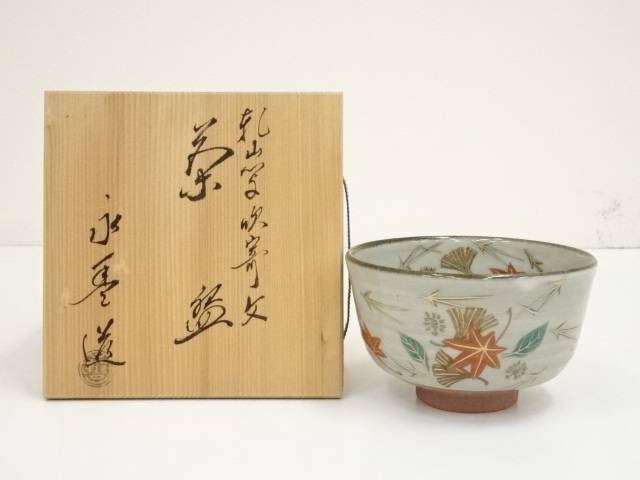 乾山写吹寄文
茶盌
永楽造